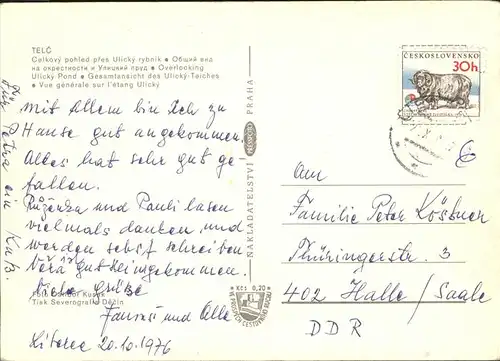 TELČ
Celkový pohled přes Ulický rybník • Общий вид
на окрестности и Улицкий пруд • Overlooking
Ulický Pond • Gesamtansicht des Ulický-Teiches
• Vue générale sur l'étang Ulický
Für Petra ein Kuß.
Mit Allem bin Ich zu
Hause gut angekommen.
Alles hat sehr gut ge
fallen.
Růženka und Pauli lasen
vielmals danken, und
werden selbst schreiben
Věra gut Heimgekommen.
Viele Grüße
und Alle
Liberec 20.10.1976
Foto
Tisk Severografia Děčín
NAKLADATELSTVÍ
PRAHA
Kčs 0,20
ČESKOSLOVENSKO
30h
Am
Familie Peter Kößtner
Thüringerstr. 3
402 Halle/Saale
DDR